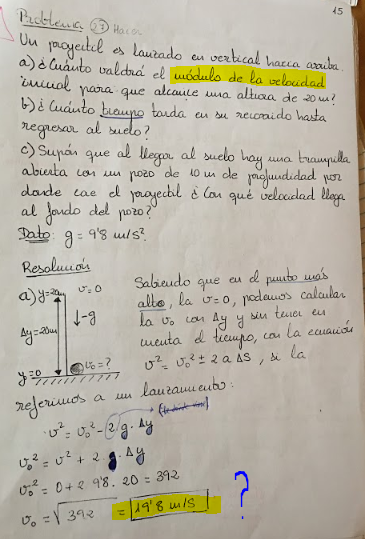 15
Problema 27
Un proyectil es lanzado en vertical hacia arriba.
a) ¿Cuánto valdrá el módulo de la velocidad
inicial para que alcance una altura de 20 m?
b) ¿Cuánto tiempo tarda en su recorrido hasta
regresar al suelo?
c) Supón que al llegar al suelo hay una trampilla
abierta con un pozo de 10 m de profundidad por
donde cae el proyectil ¿Con qué velocidad llega
al fondo del pozo?
Dato: g = 9'8 m/s².
Resolución
a) y=20m v=0
↓-g
Δy=20m
y=0 v₀=?
Sabiendo que en el punto más
alto, la v=0, podemos calcular
la v₀ con Δy y sin tener en
cuenta el tiempo, con la ecuación
v² = v₀² ± 2 a ΔS, si la
referimos a un lanzamiento:
v² = v₀² - 2 g · Δy
v₀² = v² + 2 · g · Δy
v₀² = 0 + 2 · 9'8 · 20 = 392
v₀ = √392 = 19'8 m/s ?